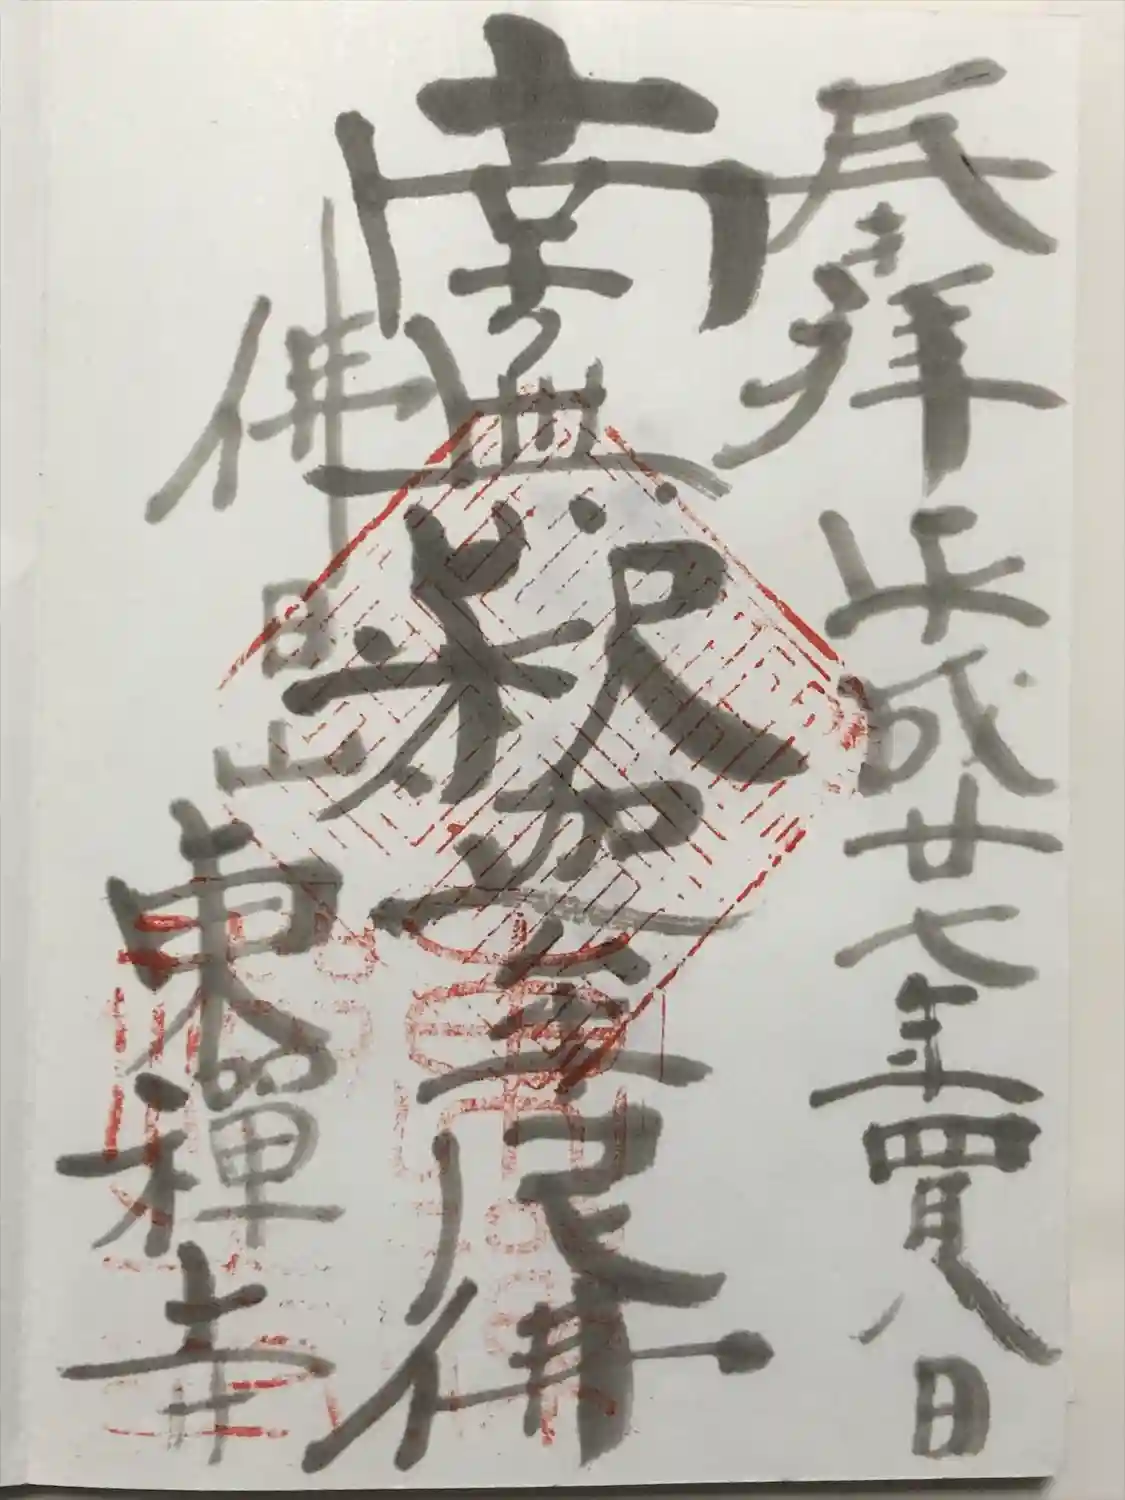 奉拝 平成廿七年四月八日
南無釈迦牟尼佛
佛日山
東禪寺